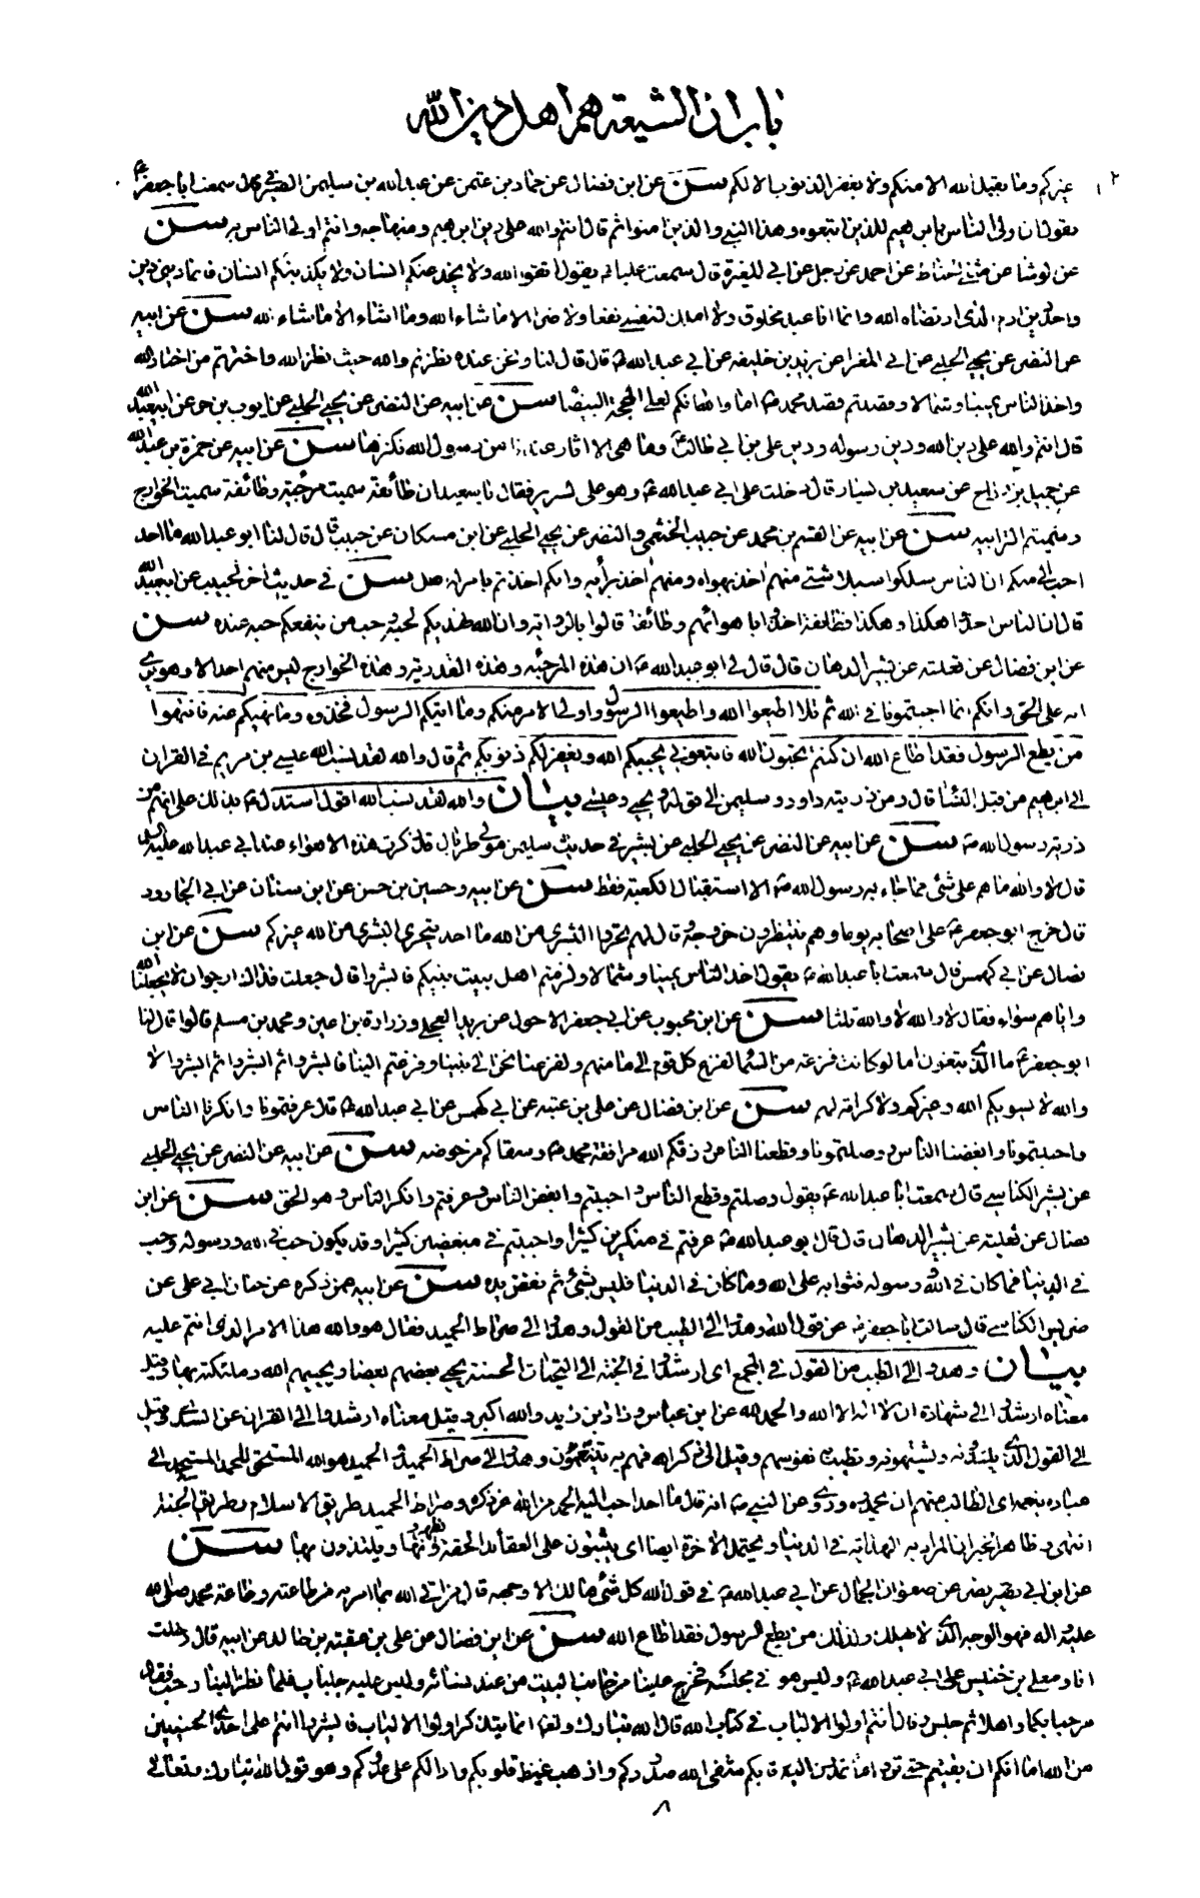 باب ان الشيعة هم اهل دين الله
غيركم وما يقبل الله الا منكم ولا يغفر الذنوب الا لكم سن عن ابن فضال عن حماد بن عثمن عن عبد الله بن سليمن الصيرفي قال سمعت ابا جعفر ع
يقول ان اولى الناس بابرهيم للذين اتبعوه وهذا النبي والذين امنوا ثم قال انتم والله على دين ابرهيم ومنهاجه وانتم اولى الناس به سن
عن الوشا عن مثنى الحناط عن احمد عن رجل عن ابي المغيرة قال سمعت عليا ع يقول اتقوا الله ولا يخدعنكم انسان ولا يكذبنكم انسان فانما ديني دين
واحد دين ادم الذي ارتضاه الله وانما انا عبد مخلوق ولا املك لنفسي نفعا ولا ضرا الا ما شاء الله وما اشاء الا ما شاء الله سن عن ابيه
عن النضر عن يحيى الحلبي عن ابي المغرا عن يزيد بن خليفه عن ابي عبد الله ع قال قال لنا ونحن عنده نظرتم والله حيث نظر الله واخترتم من اختار الله
واخذ الناس يمينا وشمالا وقصدتم قصد محمد ص اما والله انكم لعلى المحجة البيضا سن عن ابيه عن النضر عن يحيى الحلبي عن ايوب بن حر عن ابي عبد الله
قال انتم والله على دين الله ودين رسوله ودين علي بن ابي طالب ع وما هي الا اثار عندنا من رسول الله نكنزها سن عن ابيه عن حمزة بن عبد الله
عن جميل بن دراج عن سعيد بن يسار قال دخلت على ابي عبد الله ع وهو على سرير فقال يا سعيد ان طائفة سميت مرجئة وطائفة سميت الخوارج
وسميتم الترابيه سن عن ابيه عن القسم بن محمد عن حبيب الخثعمي والنضر عن يحيى الحلبي عن ابن مسكان عن حبيب قال قال لنا ابو عبد الله ما احد
احب الي منكم ان الناس سلكوا سبلا شتى منهم اخذ بهواه ومنهم اخذ برأيه وانكم اخذتم بامر له اصل سن في حديث اخر لحبيب عن ابي عبد الله
قال ان الناس اخذوا هكذا وهكذا فطائفة اخذوا باهوائهم وطائفة قالوا بالرواية وان الله هديكم لحبه وحب من ينفعكم حبه عنده سن
عن ابن فضال عن ثعلبة عن بشير الدهان قال قال لي ابو عبد الله ع ان هذه المرجئه وهذه القدريه وهذه الخوارج ليس منهم احد الا وهو يرى
انه على الحق وانكم انما اجبتمونا في الله ثم تلا اطيعوا الله واطيعوا الرسول واولي الامر منكم وما اتيكم الرسول فخذوه وما نهيكم عنه فانتهوا
من يطع الرسول فقد اطاع الله ان كنتم تحبون الله فاتبعوني يحببكم الله ويغفر لكم ذنوبكم ثم قال والله لقد نسب الله عيسى بن مريم في القران
الى ابرهيم من قبل النسا قال ومن ذريته داود وسليمن الى قوله ويحيى وعيسى بيان والله لقد نسب الله اقول استدل ع بذلك على انهم من
ذرية رسول الله ص سن عن ابيه عن النضر عن يحيى الحلبي عن بشير في حديث سليمن مولى طربال قال ذكرت هذه الاهواء عند ابي عبد الله عليه السلام
قال لا والله ما هم على شئ مما جاء به رسول الله ص الا استقبال الكعبة فقط سن عن ابيه وحسين بن حسن عن ابن سنان عن ابي الجارود
قال خرج ابو جعفر ع على اصحابه يوما وهم ينتظرون خروجه وقال لهم تحروا البشرى من الله ما احد يتحرى البشرى من الله غيركم سن عن ابن
فضال عن ابي كهمس قال سمعت ابا عبد الله ع يقول اخذ الناس يمينا وشمالا ولزمتم اهل بيت نبيكم فابشروا قال جعلت فداك ارجو ان لا يجعلنا الله
واياهم سواء فقال لا والله لا والله ثلثا سن عن ابن محبوب عن ابي جعفر الاحول عن بريد العجلي وزرارة بن اعين ومحمد بن مسلم قالوا قال لنا
ابو جعفر ع ما الذي تبغون اما لو كانت فزعة من السماء لفزع كل قوم الى مامنهم ولفزعنا نحن الى نبينا وفزعتم الينا فابشروا ثم ابشروا ثم ابشروا لا
والله لا يسويكم الله وغيركم ولا كرامة لهم سن عن ابن فضال عن علي بن عقبة عن ابي كهمس عن ابي عبد الله ع قال عرفتمونا وانكرنا الناس
واحببتمونا وابغضنا الناس ووصلتمونا وقطعنا الناس رزقكم الله مرافقة محمد ص وسقاكم من حوضه سن عن ابيه عن النضر عن يحيى الحلبي
عن بشير الكناسي قال سمعت ابا عبد الله ع يقول وصلتم وقطع الناس واحببتم وابغض الناس وعرفتم وانكر الناس وهو الحق سن عن ابن
فضال عن ثعلبة عن بشير الدهان قال قال ابو عبد الله ع عرفتم في منكرين كثيرا واحببتم في مبغضين كثيرا وقد يكون حب في الله ورسوله وحب
في الدنيا فما كان في الله ورسوله فثوابه على الله وما كان في الدنيا فليس بشئ ثم نفض يده سن عن ابيه عمن ذكره عن حنان ابي علي عن
ضريس الكناسي قال سالت ابا جعفر ع عن قول الله وهدوا الى الطيب من القول وهدوا الى صراط الحميد فقال هو والله هذا الامر الذي انتم عليه
بيان وهدوا الى الطيب من القول في المجمع اي ارشدوا في الجنة الى التحيات الحسنة يحيي بعضهم بعضا ويحييهم الله وملئكته بها وقيل
معناه ارشدوا الى شهادة ان لا اله الا الله والحمد لله عن ابن عباس وزاد ابن زيد والله اكبر وقيل معناه ارشدوا الى القران عن السدي وقيل
الى القول الذي يلتذونه ويشتهونه وتطيب به نفوسهم وقيل الى ذكر الله فهم به يتنعمون وهدوا الى صراط الحميد الحميد هو الله المستحق للحمد المستحمد الى
عباده بنعمه اي الطالب منهم ان يحمدوه وروي عن النبي ص انه قال ما احد احب اليه الحمد من الله عز ذكره وصراط الحميد طريق الاسلام وطريق الجنة
انتهى وظاهر الخبر ان المراد به الهداية في الدنيا ويحتمل الاخرة ايضا اي يثبتون على العقائد الحقة ويظهرونها ويلتذون بها سن
عن ابن ابي نصر عن صفوان الجمال عن ابي عبد الله ع في قول الله كل شئ هالك الا وجهه قال من اتى الله بما امر به من طاعته وطاعة محمد صلى الله
عليه واله فهو الوجه الذي لا يهلك ولذلك من يطع الرسول فقد اطاع الله سن عن ابن فضال عن علي بن عقبة بن خالد عن ابيه قال دخلت
انا ومعلى بن خنيس على ابي عبد الله ع وليس هو في مجلسه فخرج علينا من جانب البيت من عند نسائه وليس عليه جلباب فلما نظر الينا رحب فقال
مرحبا بكما واهلا ثم جلس وقال انتم اولوا الالباب في كتاب الله قال الله تبارك وتعالى انما يتذكر اولوا الالباب فابشروا انتم على احدى الحسنيين
من الله اما انكم ان بقيتم حتى تروا ما تمدون اليه رقابكم شفى الله صدوركم واذهب غيظ قلوبكم وادالكم على عدوكم وهو قول الله تبارك وتعالى
٨